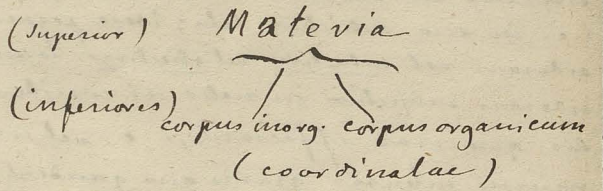 (Superior) Materia
(inferiores)
corpus inorg. corpus organicum
(coordinatae)